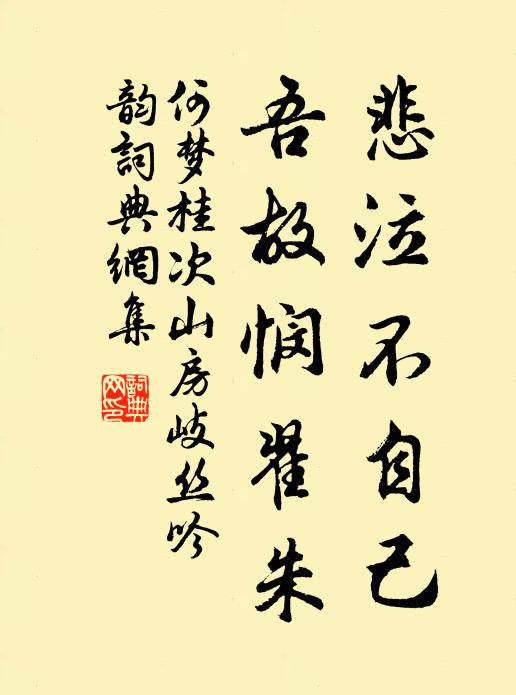 悲泣不自己
吾故悯翟朱
何梦桂次山房岐丝吟
韵詞典網集
詞典网印